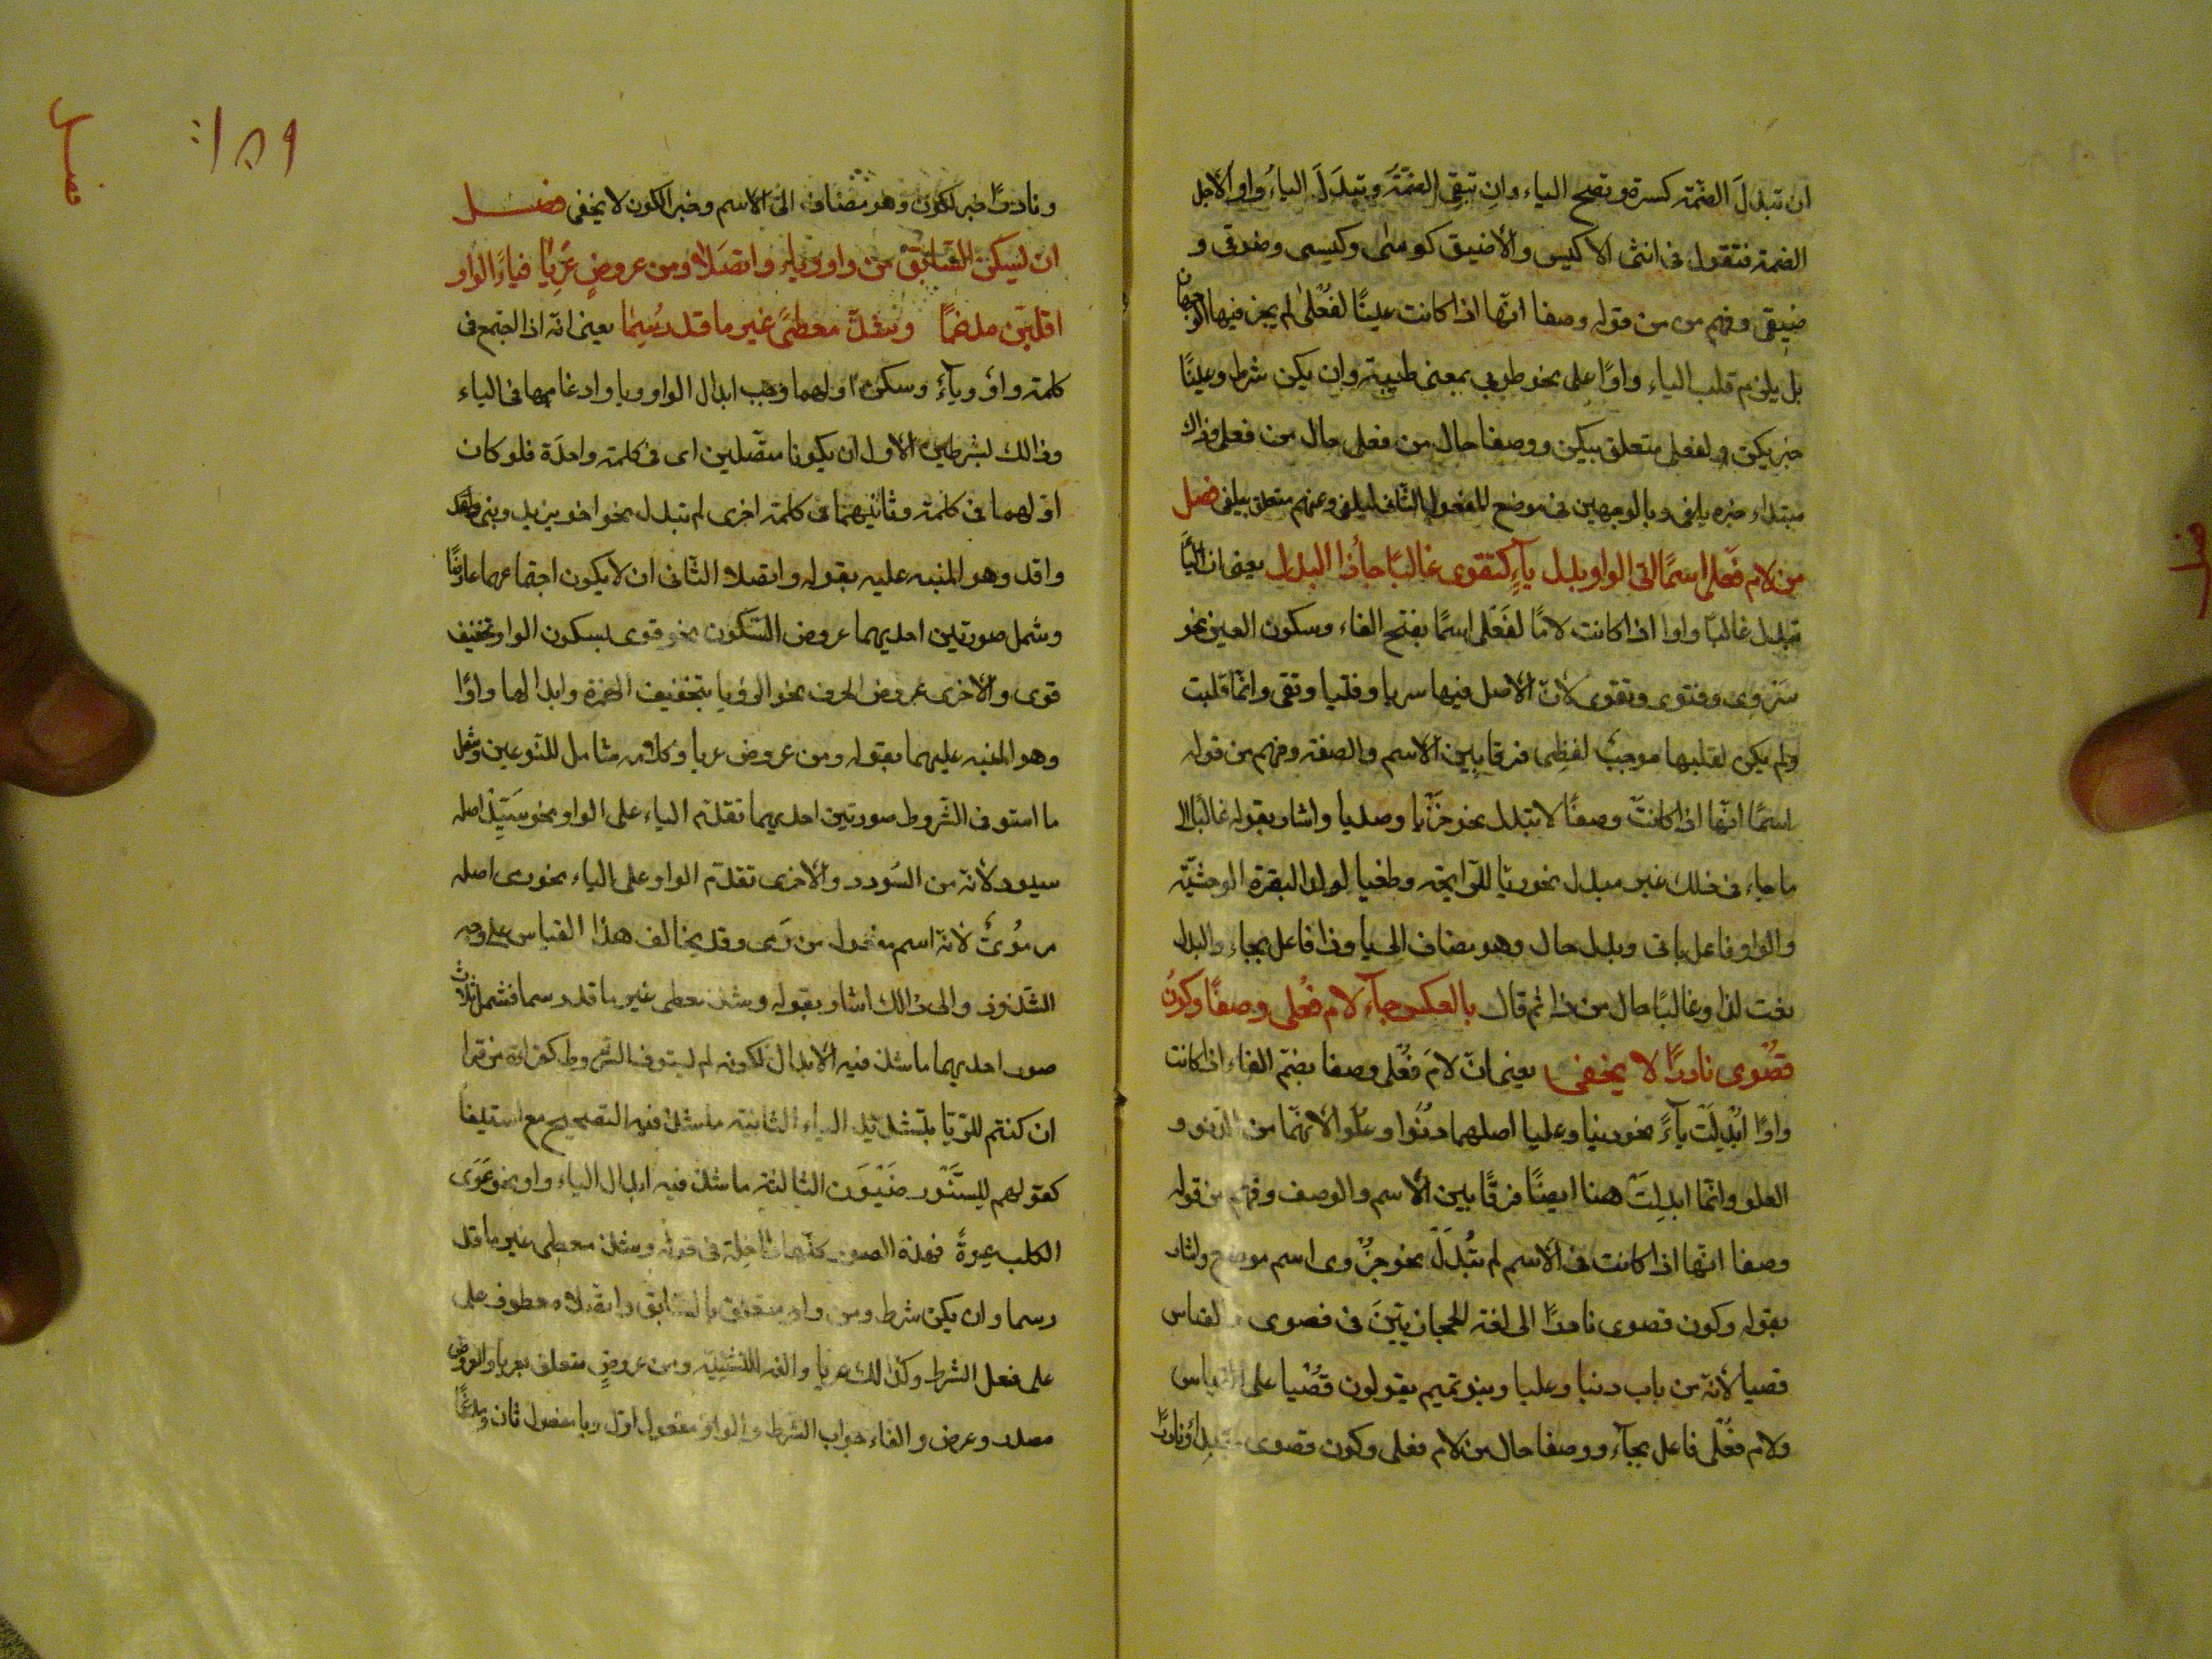 ان تبدلَ الضمّة كسرة وتصح الياء وان تبقى الضمّةُ وتبدَلَ الياءُ واوا لاجل
الضمة فتقول فى انثى الاكيس والاضيق كوسى وكيسى وضوقى و
ضيقى وفهم من من قوله وصفا انّها اذا كانت عينًا لفُعْلىٰ لم يجز فيها الوجهان
بل يلزم قلب الياء واوًا على نحو طوبى بمعنى طيبة وان يكن شرط وعينًا
خبر يكن ولفعلى متعلق بيكن ووصفا حال من فعلى حال من فعلى وذاك
مبتداء خبره يلفى وبالوجهين فى موضع المفعول الثانى ليلفى وعنهم متعلق بيلفى فصل
من لام فَعلى اسمًا اتى الواو بدل ياءٍ كتقوى غالبًا جا ذا البدل يعنى ان الياء
تبدل غالبًا واوا اذا كانت لامًا لفَعْلى اسمًا بفتح الفاء وسكون العين نحو
سَرْوى وفتوى وتقوى لانّ الاصل فيها سريا وفتيا وتقى وانّما قلبت
ولم يكن لقلبها موجبٌ لفظى فرقا بين الاسم والصفة وفهم من قوله
اسمًا انّها اذا كانتْ وصفًا لا تبدل نحو خَزْيا وصديا واشار بقوله غالبًا الى
ما جاء فى ذلك غير مبدل نحو ريّا للرّايحة وطغيا لولد البقرة الوحشيّة
والواو فاعل باتى وبدل حال وهو مضاف الى يا وذا فاعل بجاء والبدل
نعت لذا وغالبًا حال من ذا ثم قال بالعكس جآء لام فُعْلى وصفًا وكونُ
قصْوى نادرًا لا يخفى يعنى انّ لامَ فُعْلى وصفا بضمّ الفاء اذا كانت
واوًا ابْدِلَتْ يآءً نحو دنيا وعليا اصلهما دُنْوا وعلْوا لانهّما من الدنو و
العلو وانّما ابدِلتْ هنا ايضًا فرقًا بين الاسم والوصف وفهم من قوله
وصفا انّها اذا كانت فى الاسم لم تُبْدَلْ نحو حُزْوى اسم موضع واشار
بقوله وكون قصوى نادرًا الى لغة الحجازيّينَ فى قصوى والقياس
قصيا لانّه من باب دنيا وعليا وبنو تميم يقولون قصْيا على القياس
ولام فُعْلى فاعل بجآء ووصفا حال من لام فعلى وكون قصوى مبتدأ ونادرًا
١٥٩
فصل
ونادرًا خبر لكون وهو مضاف الى الاسم وخبر الكون لا يخفى فصل
ان يسكن السّابق من واو ويا واتصلا ومن عروضٍ عَرِيا فياءً الواو
اقلبنّ مدغمًا وشذّ معطىً غير ما قد رُسِما يعنى انّه اذا اجتمع فى
كلمة واوٌ ويآءٌ وسكن اولهما وجب ابدال الواو ويا وادغامها فى الياء
وذالك بشرطين الاول ان يكونا متصّلين اى فى كلمة واحدَة فلو كان
اوّلهما فى كلمة وثانيهما فى كلمة اخرى لم تبدل نحو اخو يزيد وبنى
واقد وهو المنبه عليه بقوله واتصلا الثّانى ان لا يكون اجتماعهما عارضًا
وشمل صورتين احديهما عروض السّكون نحو قوى بسكون الواو تخفيف
قوى والاخرى عروض الحرف نحو الرؤيا بتخفيف الهمزة وابدالها واوًا
وهو المنبه عليهما بقوله ومن عروض عريا وكلامه شامل للنّوعين وشمل
ما استوفى الشّروط صورتين احديهما تقدّم الياء على الواو نحو سَيّد اصله
سيود لانّه من السُودد والاخرى تقدّم الواو على الياء نحو اصله
مرمُوىٌ لانّه اسم مفعول من رَمى وقد يخالف هذا القياس على وجه
الشّذوذ والى ذالك اشار بقوله وشذ معطى غير ما قد رسما فشمل ثلاث
صور احديهما ما شذ فيه الابدال لكونه لم يستوف الشّروط كقراءة من قرا
ان كنتم للرّيّا بتشديد الياء الثانية ما شذ فيه التصحيح مع استيفا
كقولهم للِسّنَّوْر ضَيْوَن الثالثة ما شذ فيه ابدال الياء واوا نحو عَوَى
الكلب عوةً فهذه الصور كلّها داخلة فى قوله وشذ معطى غير ما قد
رسما وان يكن شرط ومن واو متعلق بالسّابق واتصلا معطوف على
على فعل الشرط وكذالك عريا والفه للتثنية ومن عروضٍ متعلق بعريا والعروض
مصدر وعرض والفاء جواب الشّرط والواو مفعول اوّل ويا مفعول ثان ومدغمًا